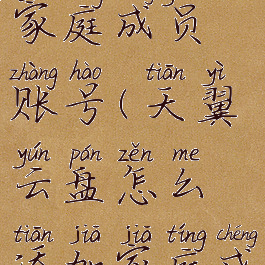 家庭成员
zhàng hào tiān yì
账号(天翼
yún pán zěn me
云盘怎么
tiān jiā jiā tíng chéng
添加家庭成